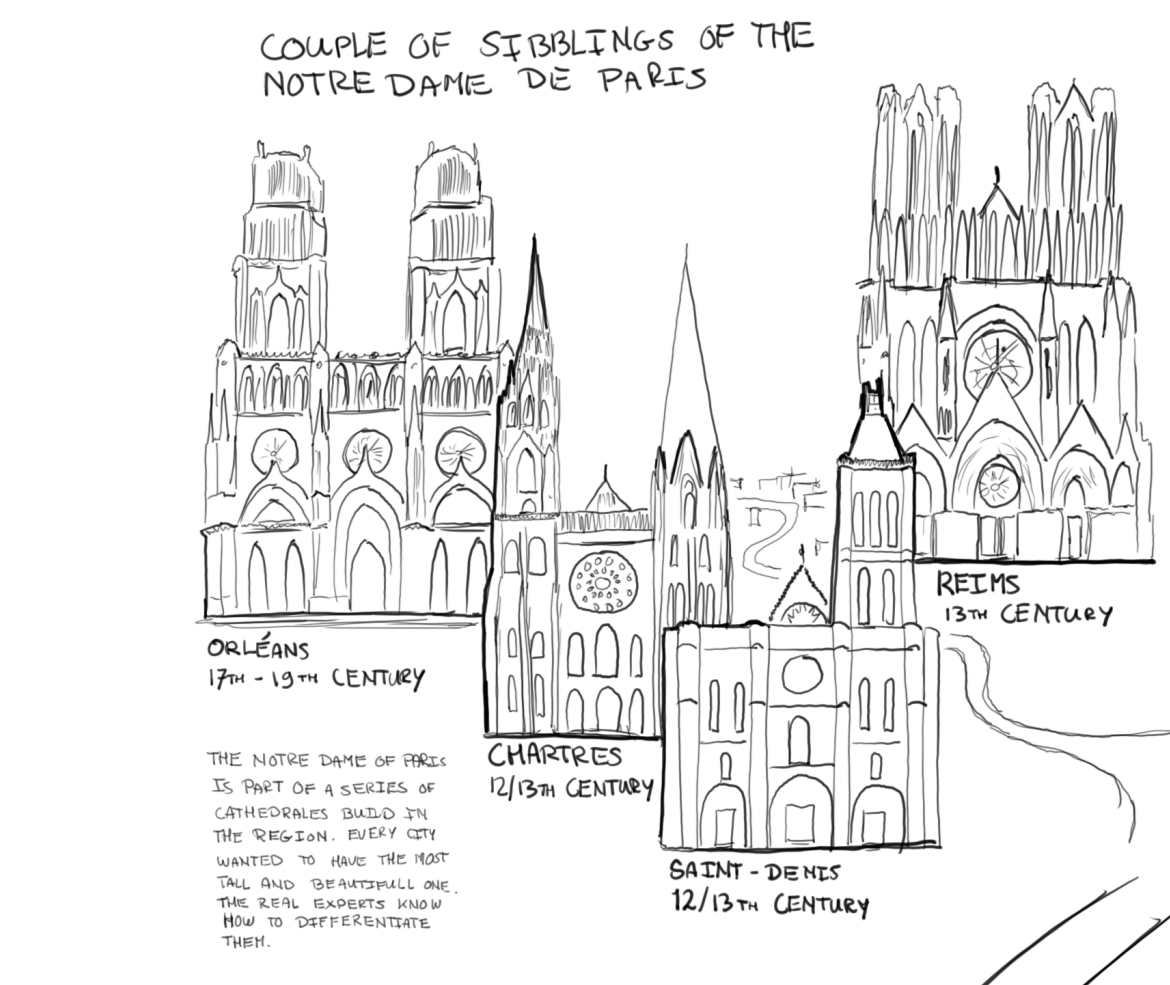 COUPLE OF SIBBLINGS OF THE
NOTRE DAME DE PARIS
ORLÉANS
17TH - 19TH CENTURY
CHARTRES
12/13TH CENTURY
SAINT-DENIS
12/13TH CENTURY
REIMS
13TH CENTURY
THE NOTRE DAME OF PARIS
IS PART OF A SERIES OF
CATHEDRALES BUILD IN
THE REGION. EVERY CITY
WANTED TO HAVE THE MOST
TALL AND BEAUTIFULL ONE.
THE REAL EXPERTS KNOW
HOW TO DIFFERENTIATE
THEM.